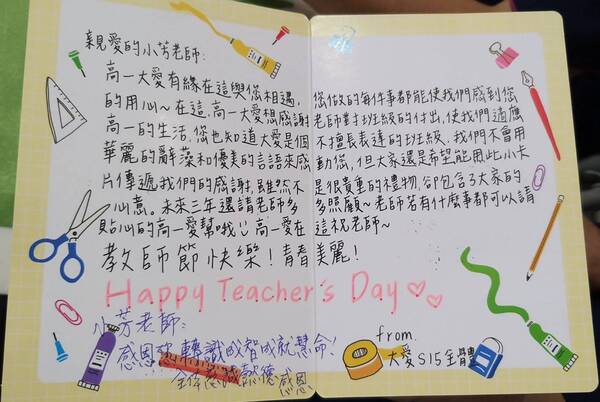 親愛的小芳老師:
高一大愛有緣在這與您相遇,您做的每件事都能使我們感到您
的用心~在這,高一大愛想感謝老師對班級的付出,使我們適應
高一的生活,您也知道大愛是個不擅長表達的班級,我們不會用
華麗的辭藻和優美的言語來感動您,但大家還是希望能用此小卡
片傳遞我們的感謝,雖然不是很貴重的禮物,卻包含了大家的
心意。未來三年還請老師多多照顧~老師若有什麼事都可以請
貼心的高一愛幫哦!!高一愛在這祝老師~
教師節快樂!青春美麗!
Happy Teacher's Day
小芳老師:
感恩您 轉識成智成就慧命!
全体慈誠懿德 感恩
from.
大愛S15全體